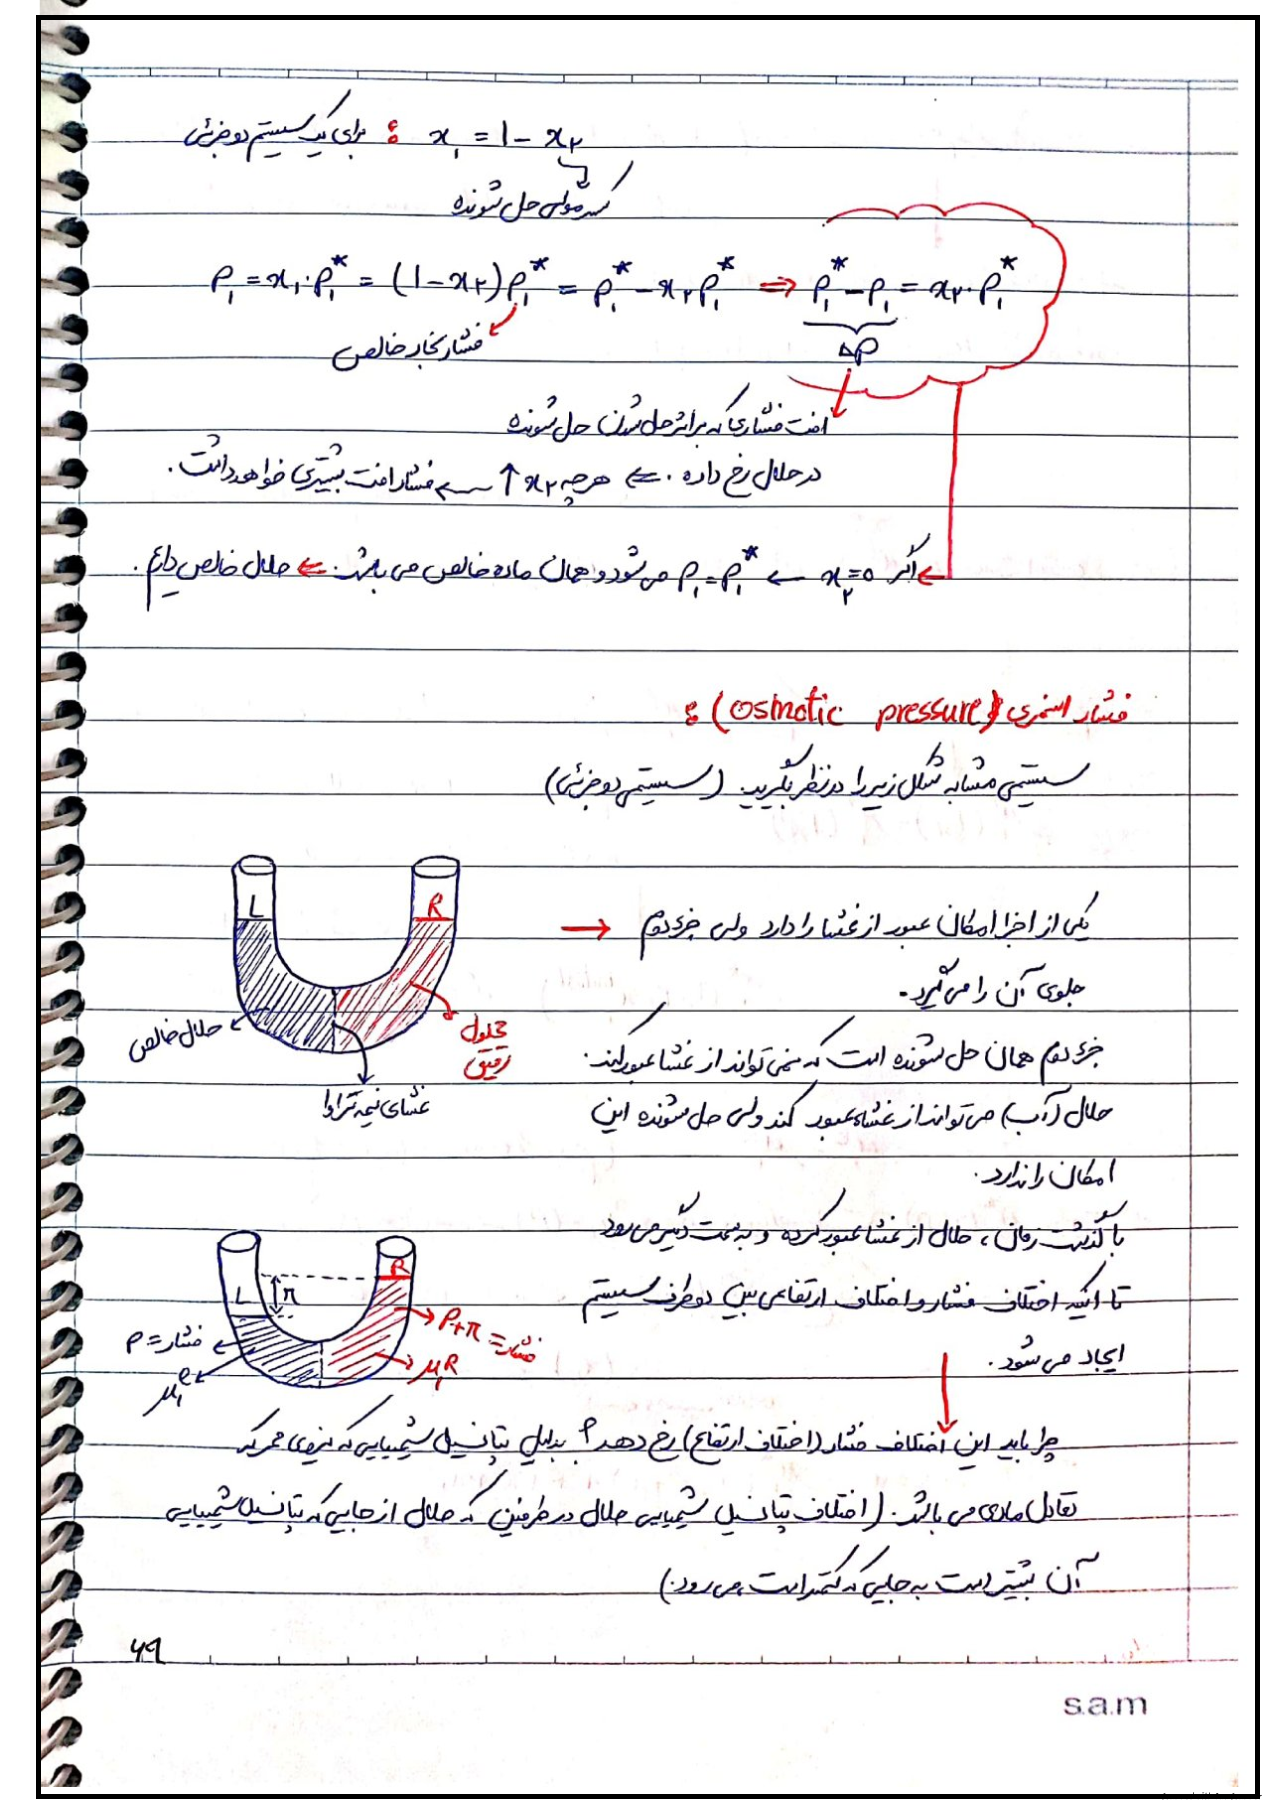 برای یک سیستم دوجزئی : x₁ = ۱ - x₂
کسر مولی حل شونده
P₁ = x₁.P₁* = (۱ - x₂)P₁* = P₁* - x₂P₁* ⇒ P₁* - P₁ = x₂.P₁*
فشار بخار خالص
ΔP
افت فشاری که بر اثر حل شدن حل شونده
در حلال رخ داده . ⇐ هرچه x₂ ↑ ← فشار افت بیشتری خواهد داشت .
اگر x₂ = ۰ ← P₁ = P₁* می شود و همان ماده خالص می باشد. ⇐ حلال خالص داریم .
فشار اسمزی (osmotic pressure) :
سیستمی مشابه شکل زیر را در نظر بگیرید. (سیستمی دوجزئی)
L R
یکی از اجزا امکان عبور از غشا را دارد ولی جزء دوم
جلوی آن را می گیرد.
حلال خالص
محلول رقیق
غشای نیمه تراوا
جزء دوم همان حل شونده است که نمی تواند از غشا عبور کند.
حلال (آب) می تواند از غشاء عبور کند ولی حل شونده این
امکان را ندارد.
با گذشت زمان ، حلال از غشا عبور کرده و به سمت دیگر می رود
تا اینکه اختلاف فشار و اختلاف ارتفاعی بین دو طرف سیستم
ایجاد می شود .
L π R
فشار = P
فشار = P+π
μ₁ᴸ
μ₁ᴿ
چرا باید این اختلاف فشار (اختلاف ارتفاع) رخ دهد؟ بدلیل پتانسیل شیمیایی که نیروی محرکه
تعادل مادی می باشد. (اختلاف پتانسیل شیمیایی حلال در طرفین که حلال از جایی که پتانسیل شیمیایی
آن بیشتر است به جایی که کمتر است می رود.)
۴۹
s.a.m